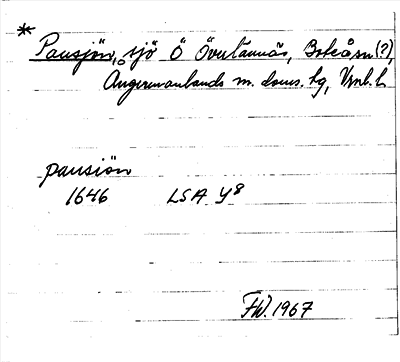 * Pausjön, sjö Ö Överlännäs, Boteåsn(?),
Ångermanlands m. doms. hg, Vrnl. l.
pausiön
1646 LSA Y8
FW. 1967